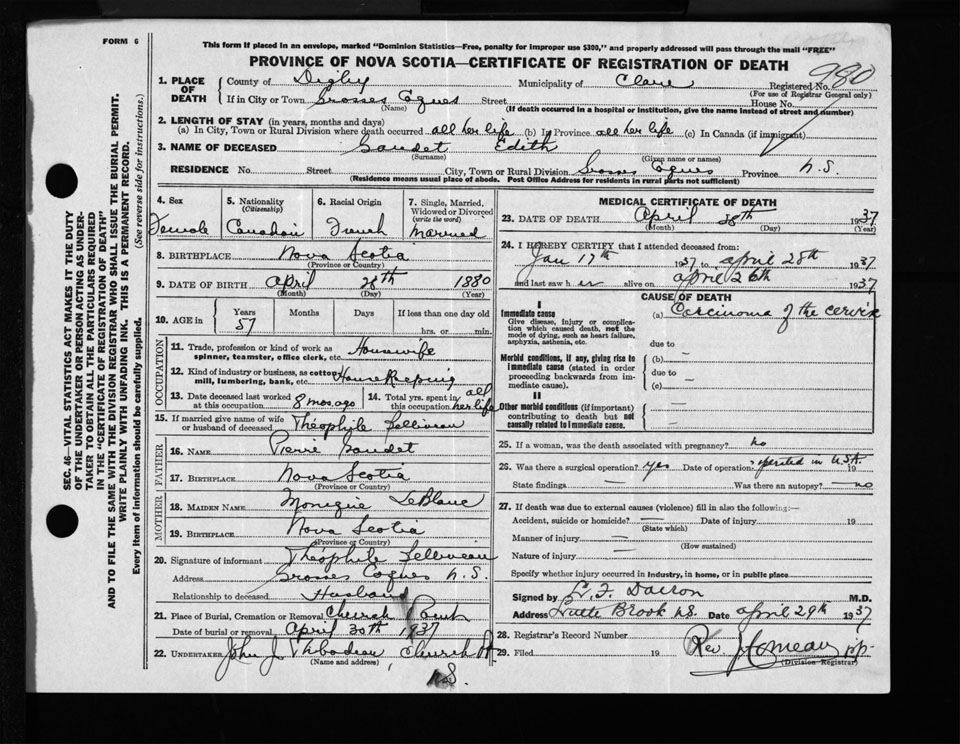 FORM 6
This form if placed in an envelope, marked "Dominion Statistics—Free, penalty for improper use $300," and properly addressed will pass through the mail "FREE"
PROVINCE OF NOVA SCOTIA—CERTIFICATE OF REGISTRATION OF DEATH
980
1. PLACE OF DEATH
County of Digby Municipality of Clare Registered No.
(For use of Registrar General only)
If in City or Town Grosses Coques Street House No.
(Name) (If death occurred in a hospital or institution, give the name instead of street and number)
2. LENGTH OF STAY (in years, months and days)
(a) In City, Town or Rural Division where death occurred all her life (b) In Province all her life (c) In Canada (if immigrant)
3. NAME OF DECEASED Gaudet Edith
(Surname) (Given name or names)
RESIDENCE No. Street City, Town or Rural Division Grosses Coques Province N.S.
(Residence means usual place of abode. Post Office Address for residents in rural parts not sufficient)
4. Sex
Female
5. Nationality
(Citizenship)
Canadian
6. Racial Origin
French
7. Single, Married, Widowed or Divorced
(write the word)
Married
8. BIRTHPLACE Nova Scotia
(Province or Country)
9. DATE OF BIRTH April 28th 1880
(Month) (Day) (Year)
10. AGE in Years Months Days If less than one day old
57 hrs. or min.
OCCUPATION
11. Trade, profession or kind of work as spinner, teamster, office clerk, etc. Housewife
12. Kind of industry or business, as cotton mill, lumbering, bank, etc. House Keeping
13. Date deceased last worked at this occupation 8 mos. ago
14. Total yrs. spent in this occupation all her life
15. If married give name of wife or husband of deceased Théophile
FATHER
16. NAME Pierre Gaudet
17. BIRTHPLACE Nova Scotia
(Province or Country)
MOTHER
18. MAIDEN NAME Monique LeBlanc
19. BIRTHPLACE Nova Scotia
(Province or Country)
20. Signature of informant Théophile
Address Grosses Coques N.S.
Relationship to deceased Husband
21. Place of Burial, Cremation or Removal Church Point
Date of burial or removal April 30th 1937
22. UNDERTAKER John J. Thibodeau, Church Pt
(Name and address)
N.S.
MEDICAL CERTIFICATE OF DEATH
23. DATE OF DEATH April 28th 1937
(Month) (Day) (Year)
24. I HEREBY CERTIFY that I attended deceased from:
Jan 17th 1937 to April 28th 1937
and last saw her alive on April 26th 1937
CAUSE OF DEATH
I
Immediate cause
Give disease, injury or complication which caused death, not the mode of dying, such as heart failure, asphyxia, asthenia, etc.
(a) Carcinoma of the cervix
due to
Morbid conditions, if any, giving rise to immediate cause (stated in order proceeding backwards from immediate cause).
(b) —
due to —
(c)
II
Other morbid conditions (if important) contributing to death but not causally related to immediate cause.
25. If a woman, was the death associated with pregnancy? No
26. Was there a surgical operation? yes Date of operation operated in U.S.A. 19
State findings — Was there an autopsy? — no
27. If death was due to external causes (violence) fill in also the following:—
Accident, suicide or homicide? — Date of injury 19
(State which)
Manner of injury —
(How sustained)
Nature of injury —
Specify whether injury occurred in industry, in home, or in public place
Signed by M.D.
Address Little Brook N.S. Date April 29th 1937
28. Registrar's Record Number
29. Filed 19 Rev. J. Comeau p.p.
(Division Registrar)
SEC. 46—VITAL STATISTICS ACT MAKES IT THE DUTY
OF THE UNDERTAKER OR PERSON ACTING AS UNDERTAKER TO OBTAIN ALL THE PARTICULARS REQUIRED
IN THE "CERTIFICATE OF REGISTRATION OF DEATH"
AND TO FILE THE SAME WITH THE DIVISION REGISTRAR WHO SHALL ISSUE THE BURIAL PERMIT.
WRITE PLAINLY WITH UNFADING INK. THIS IS A PERMANENT RECORD.
Every item of information should be carefully supplied. (See reverse side for instructions.)